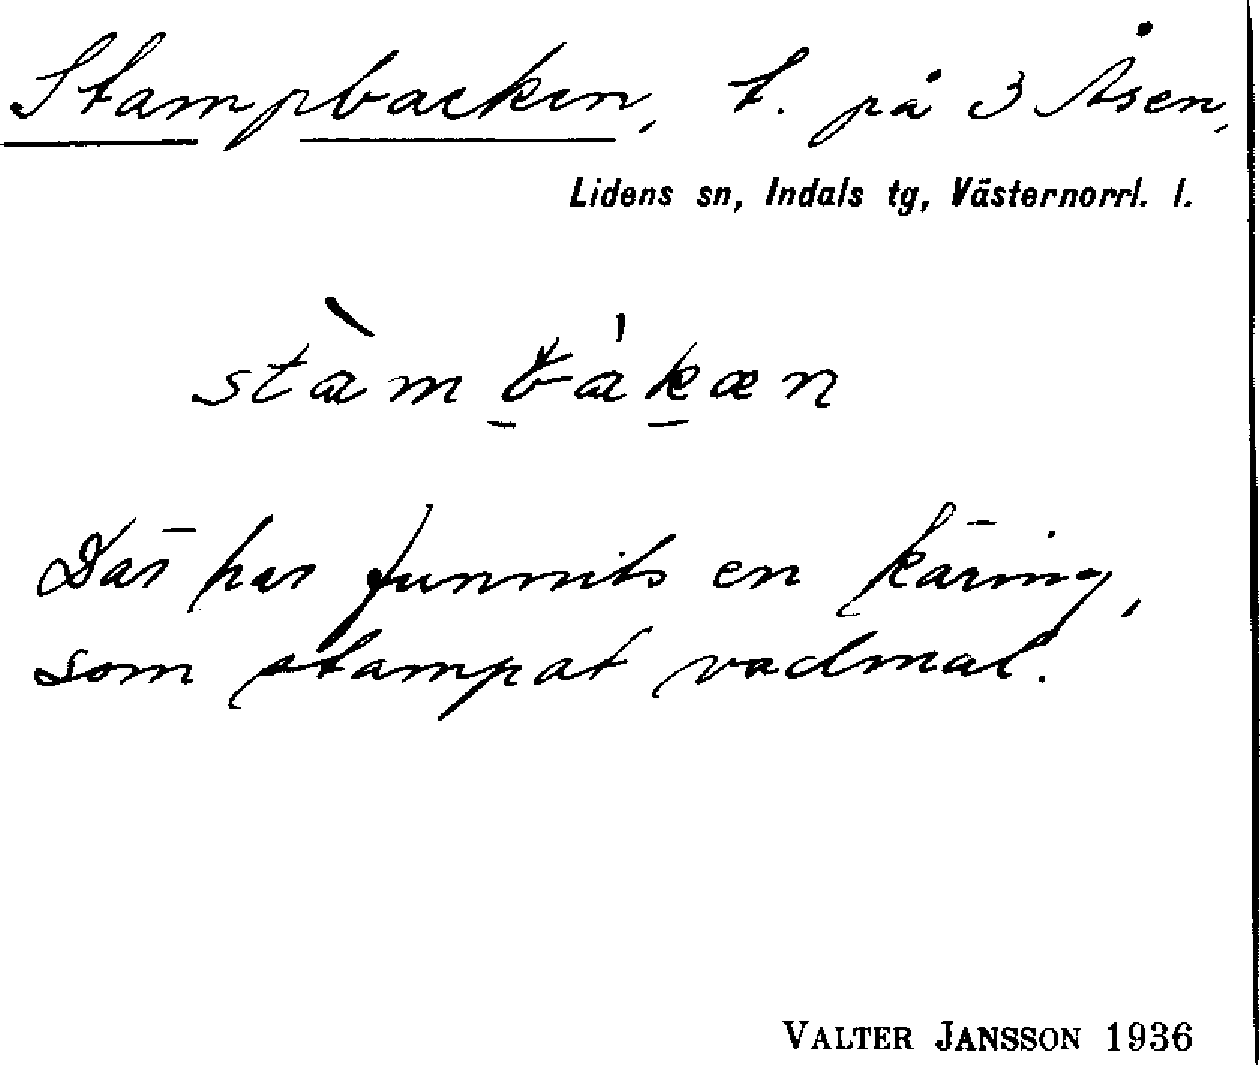 Stampbacken, t. på 3 Åsen,
Lidens sn, Indals tg, Västernorrl. l.
stàm bákæn
Där har funnits en käring,
som stampat vadmal.
VALTER JANSSON 1936